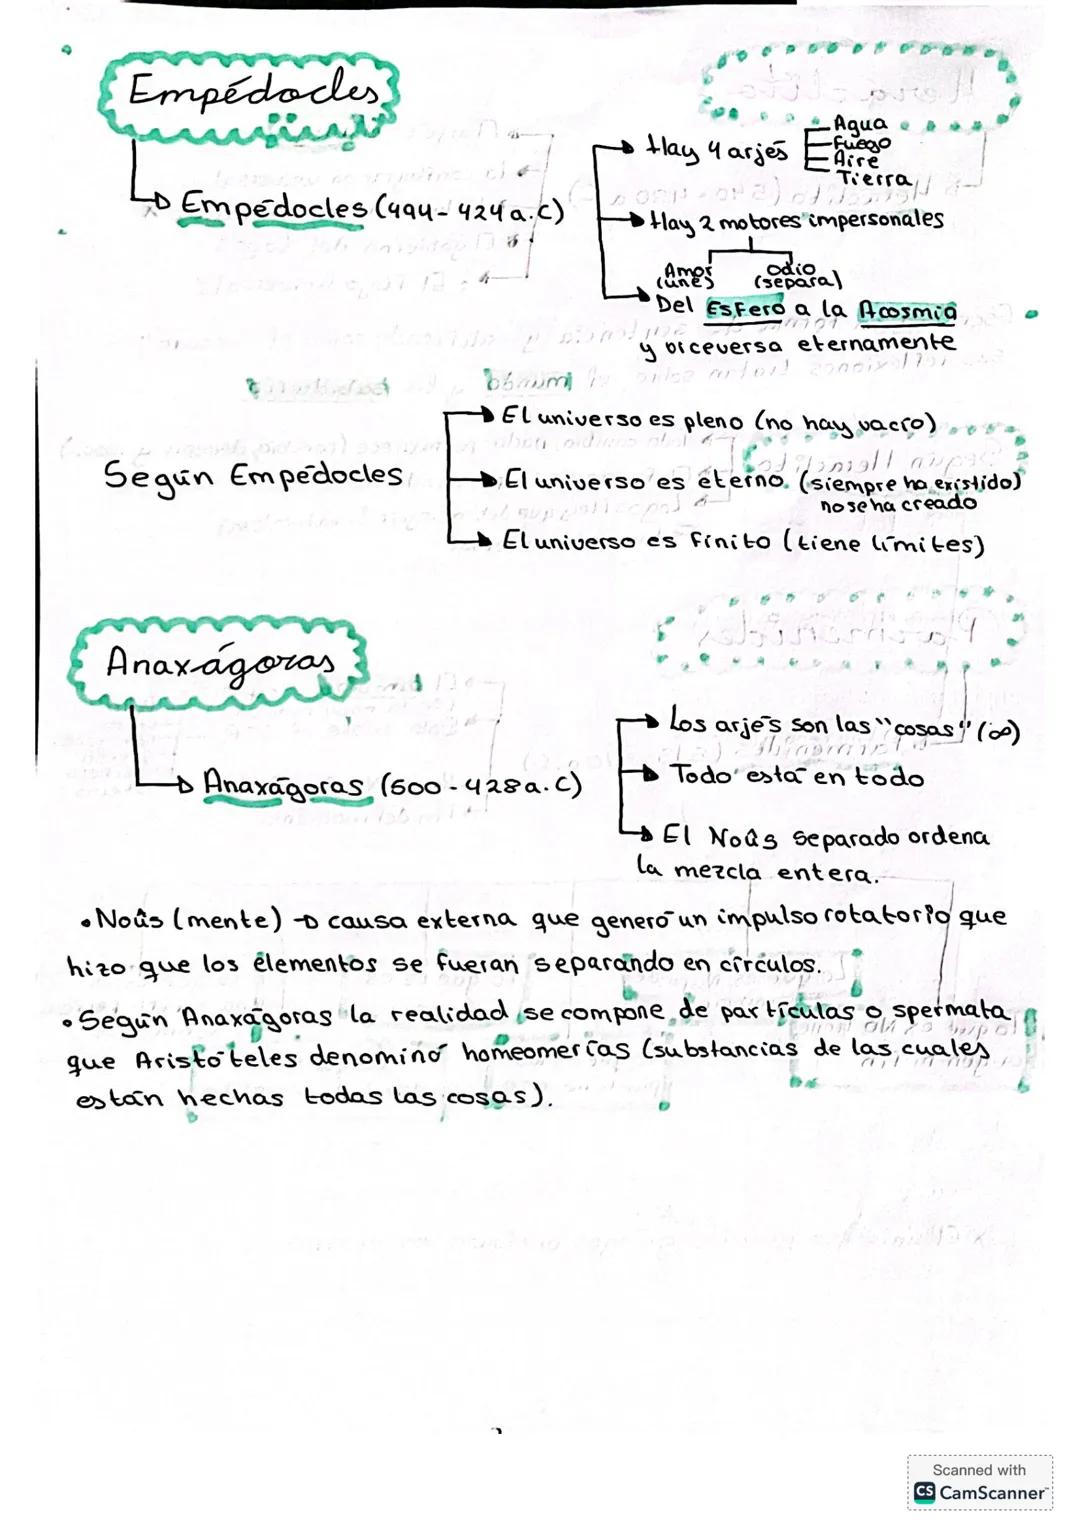 Empédocles
Empédocles (494-424 a.C)
Hay 4 arjés
Agua
Fuego
Aire
Tierra
Hay 2 motores impersonales
Amor (une)
Odio (separa)
Del Esfero a la Acosmia
y viceversa eternamente
Según Empédocles
El universo es pleno (no hay vacío)
El universo es eterno. (siempre ha existido)
no se ha creado
El universo es finito (tiene límites)
Anaxágoras
Anaxágoras (500-428 a.C)
Los arjés son las "cosas" (∞)
Todo está en todo
El Noûs separado ordena
la mezcla entera.
• Noûs (mente) → causa externa que generó un impulso rotatorio que
hizo que los elementos se fueran separando en círculos.
• Según Anaxágoras la realidad se compone de partículas o spermata
que Aristóteles denominó homeomerías (substancias de las cuales
están hechas todas las cosas).
Scanned with
CS CamScanner